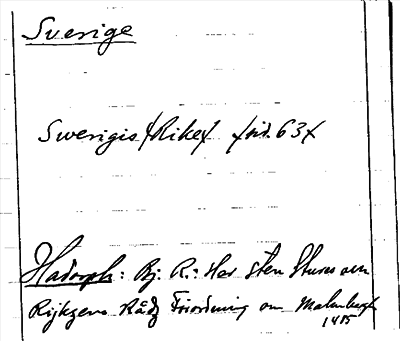 Sverige
Swerigis /Rike/ /sid. 63/
Hadorph: Bj. R.: Her Sten Stures och
Rijkzens Rådz Förordning om Malmbergh
1485